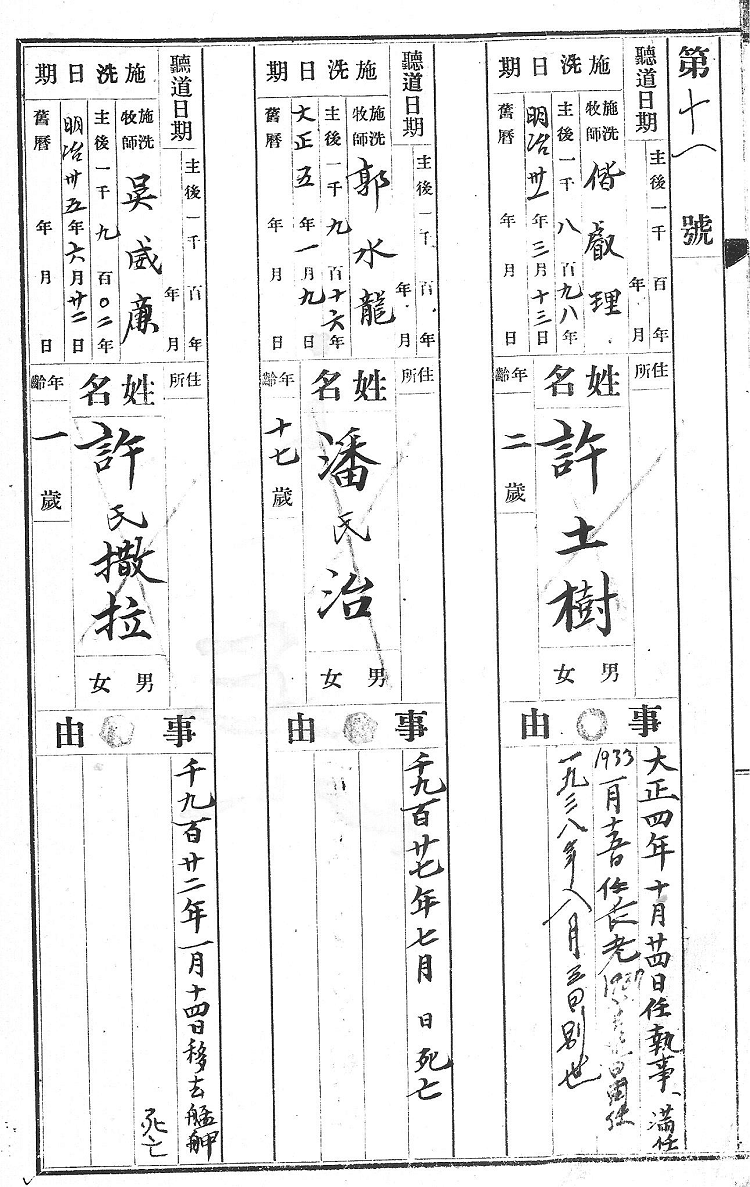 第十八號
聽道日期
主後一千 百 年
年 月
施洗日期
施洗牧師
偕叡理
主後一千八百九八年
明治卅一年三月十三日
舊曆 年 月 日
住所
姓名
許土樹
年齡
二歲
男女
事由
大正四年十月廿四日任執事、滿任
1933一月十五日任長老
一九三八年八月五日別世
聽道日期
主後一千 百 年
年 月
施洗日期
施洗牧師
郭水龍
主後一千九百十六年
大正五年一月九日
舊曆 年 月 日
住所
姓名
潘氏治
年齡
十七歲
男女
事由
千九百廿七年七月 日死亡
聽道日期
主後一千 百 年
年 月
施洗日期
施洗牧師
吳威廉
主後一千九百〇二年
明治卅五年六月廿二日
舊曆 年 月 日
住所
姓名
許氏撒拉
年齡
一歲
男女
事由
千九百廿二年一月十四日移去艋舺
死亡